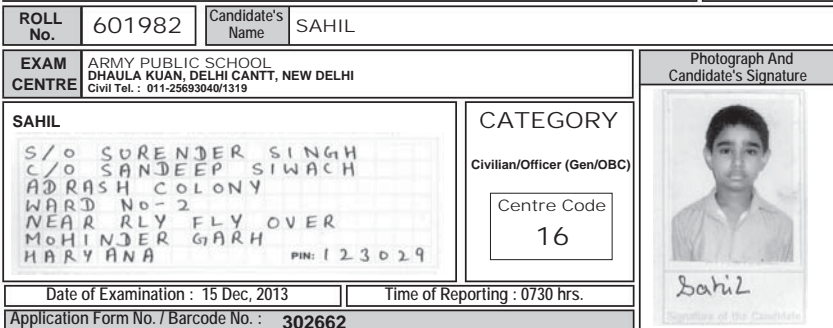 ROLL No. 601982 Candidate's Name SAHIL
EXAM CENTRE ARMY PUBLIC SCHOOL
DHAULA KUAN, DELHI CANTT, NEW DELHI
Civil Tel. : 011-25693040/1319
Photograph And
Candidate's Signature
SAHIL
S/O SURENDER SINGH
C/O SANDEEP SIWACH
ADRASH COLONY
WARD No-2
NEAR RLY FLY OVER
MOHINDER GARH
HARYANA PIN: 123029
CATEGORY
Civilian/Officer (Gen/OBC)
Centre Code
16
Sahil
Signature of the Candidate
Date of Examination : 15 Dec, 2013 Time of Reporting : 0730 hrs.
Application Form No. / Barcode No. : 302662